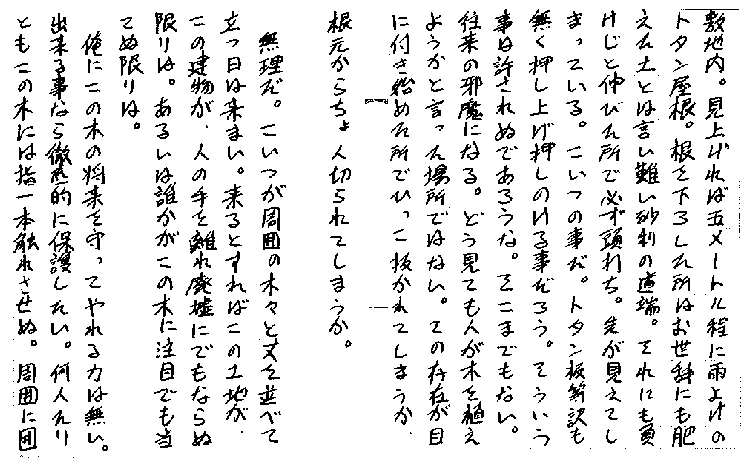 敷地内。見上げれば五メートル程に雨よけの
トタン屋根。根を下ろした所はお世辞にも肥
えた土とは言い難い砂利の道端。それにも負
けじと伸びた所で必ず頭打ち。先が見えてし
まっている。こいつの事だ。トタン板等訳も
無く押し上げ押しのける事だろう。そういう
事は許されぬであろうな。そこまでもない。
往来の邪魔になる。どう見ても人が木を植え
ようかと言った場所ではない。その存在が目
に付き始めた所でひっこ抜かれてしまうか、
根元からちょん切られてしまうか。
無理だ。こいつが周囲の木々と丈を並べて
立つ日は来まい。来るとすればこの土地が、
この建物が、人の手を離れ廃墟にでもならぬ
限りは。あるいは誰かがこの木に注目でも当
てぬ限りは。
俺にこの木の将来を守ってやれる力は無い。
出来る事なら徹底的に保護したい。何人たり
ともこの木には指一本触れさせぬ。周囲に囲